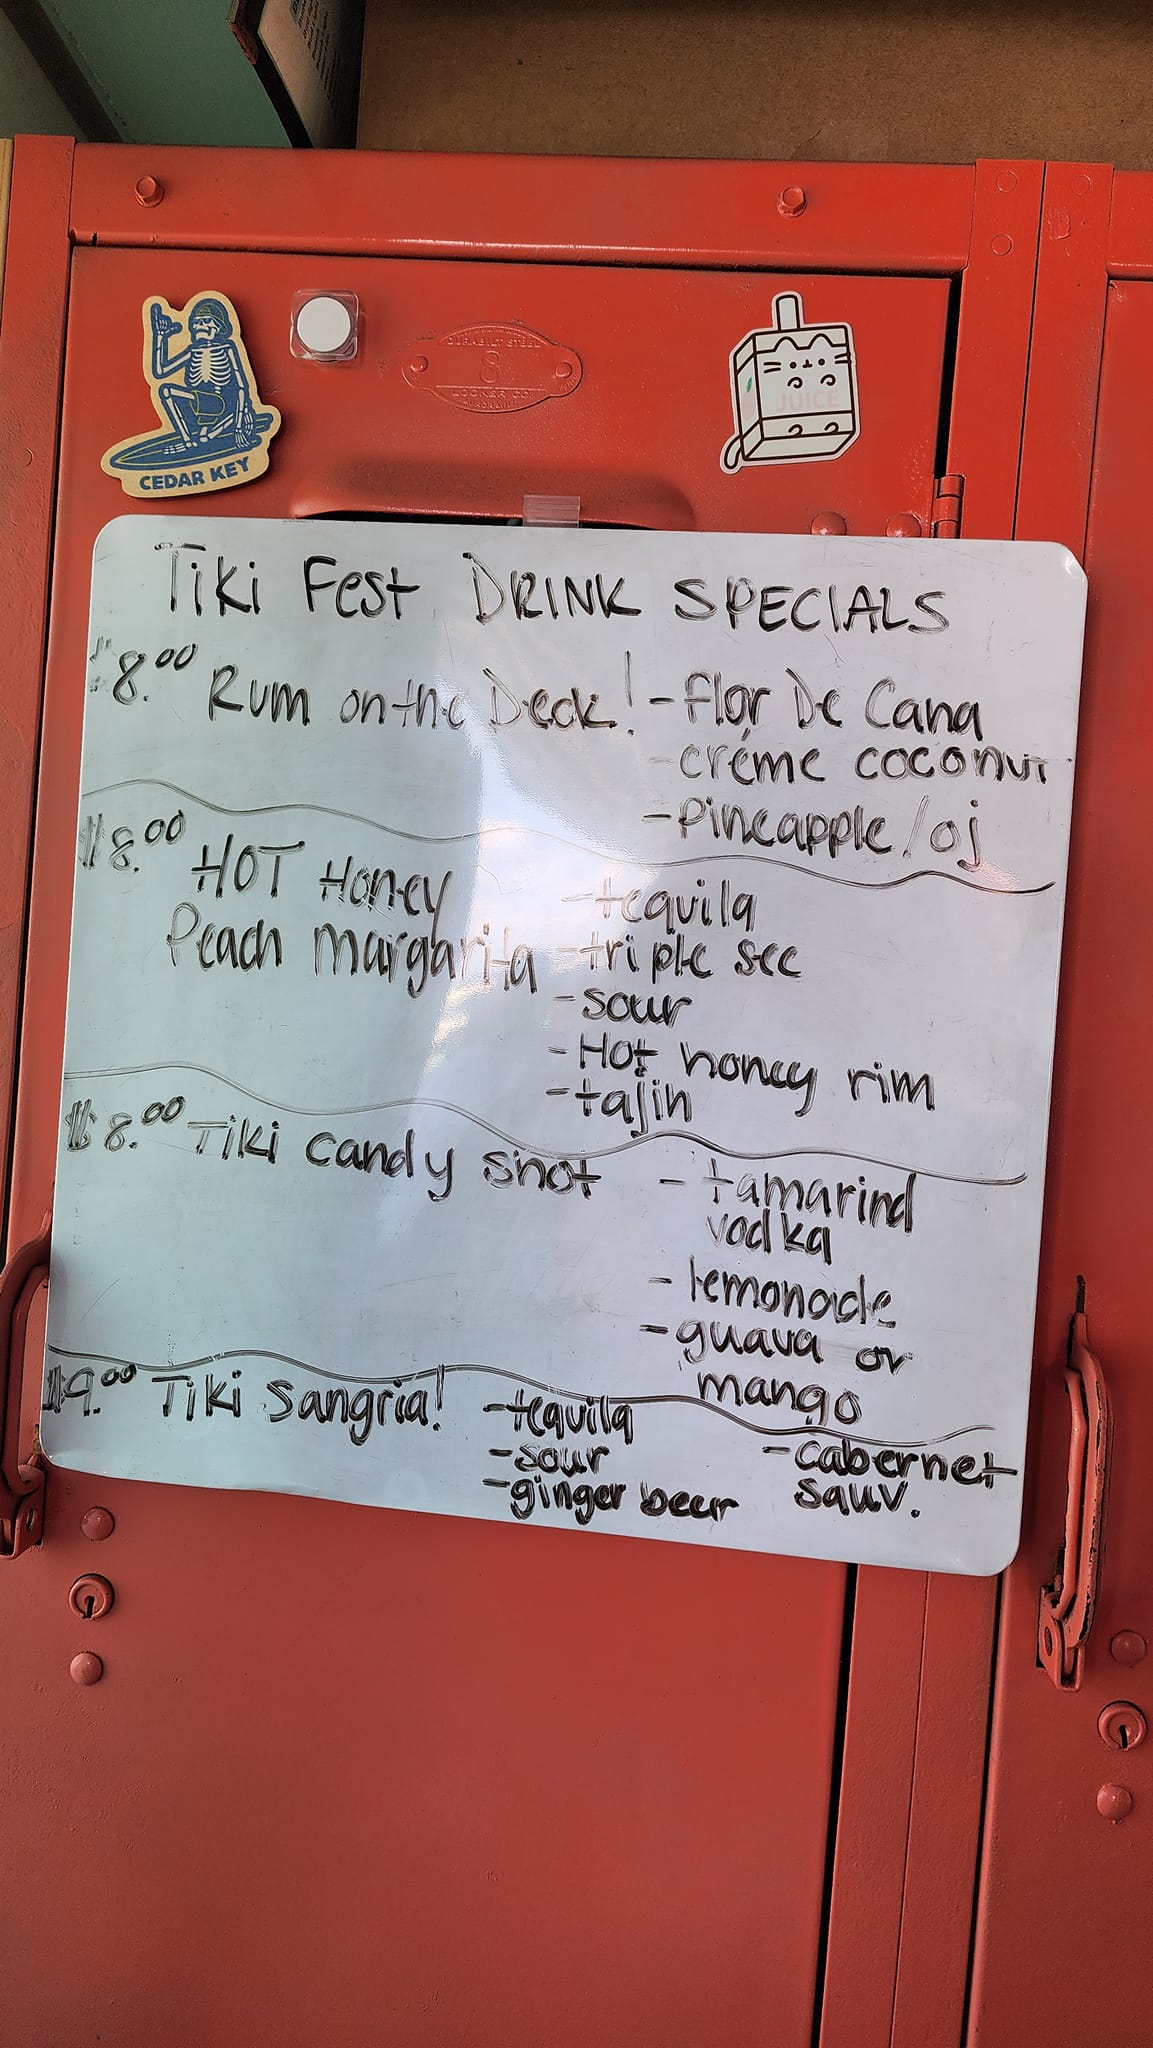 CEDAR KEY
DURABILT STEEL
8
LOCKER CO.
JUICE
Tiki Fest DRINK SPECIALS
$8.00 Rum on the Deck! -Flor De Cana
-créme coconut
-Pineapple/oj
$8.00 HOT Honey
Peach margarita
-tequila
-triple sec
-sour
-Hot honey rim
-tajin
$8.00 Tiki candy shot
-tamarind
vodka
-lemonade
-guava or
mango
$9.00 Tiki Sangria!
-tequila
-sour
-ginger beer
-cabernet
sauv.